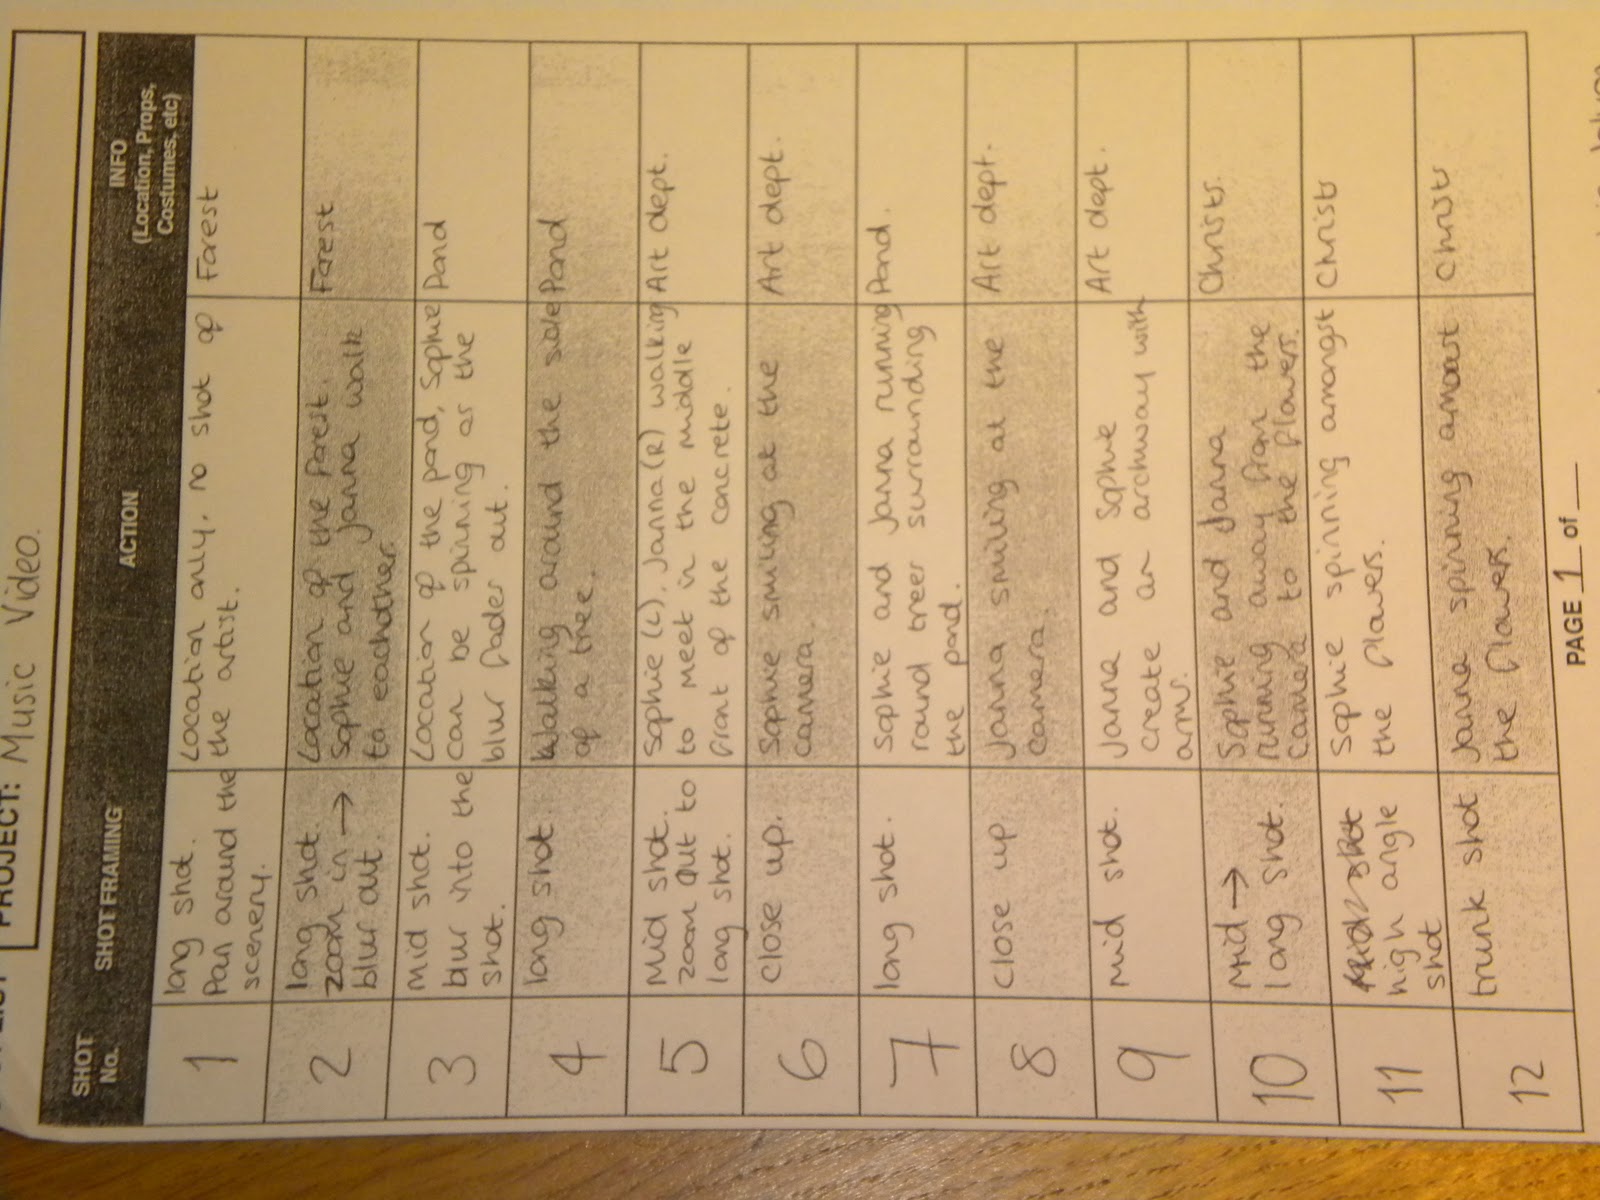 PROJECT: Music Video.
SHOT No.
SHOT FRAMING
ACTION
INFO
(Location, Props,
Costumes, etc)
1
long shot.
Pan around the
scenery.
Location only, no shot of
the artist.
Forest
2
long shot.
zoom in →
blur out.
Location of the forest.
Sophie and Janna walk
to eachother.
Forest
3
Mid shot.
blur into the
shot.
Location of the pond, Sophie
can be spinning as the
blur fades out.
Pond
4
long shot.
Walking around the side
of a tree.
Pond
5
Mid shot.
zoom out to
long shot.
Sophie (L), Janna (R) walking
to meet in the middle
front of the concrete.
Art dept.
6
Close up.
Sophie smiling at the
camera.
Art dept.
7
long shot.
Sophie and Janna running
round trees surrounding
the pond.
Pond.
8
Close up
Janna smiling at the
camera.
Art dept.
9
Mid shot.
Janna and Sophie
create an archway with
arms.
Art dept.
10
Mid →
long shot.
Sophie and Janna
running away from the
camera to the flowers.
Christs.
11
high angle
shot
Sophie spinning amongst
the flowers.
Christs
12
trunk shot
Janna spinning amoust
the flowers.
Christs
PAGE 1 of